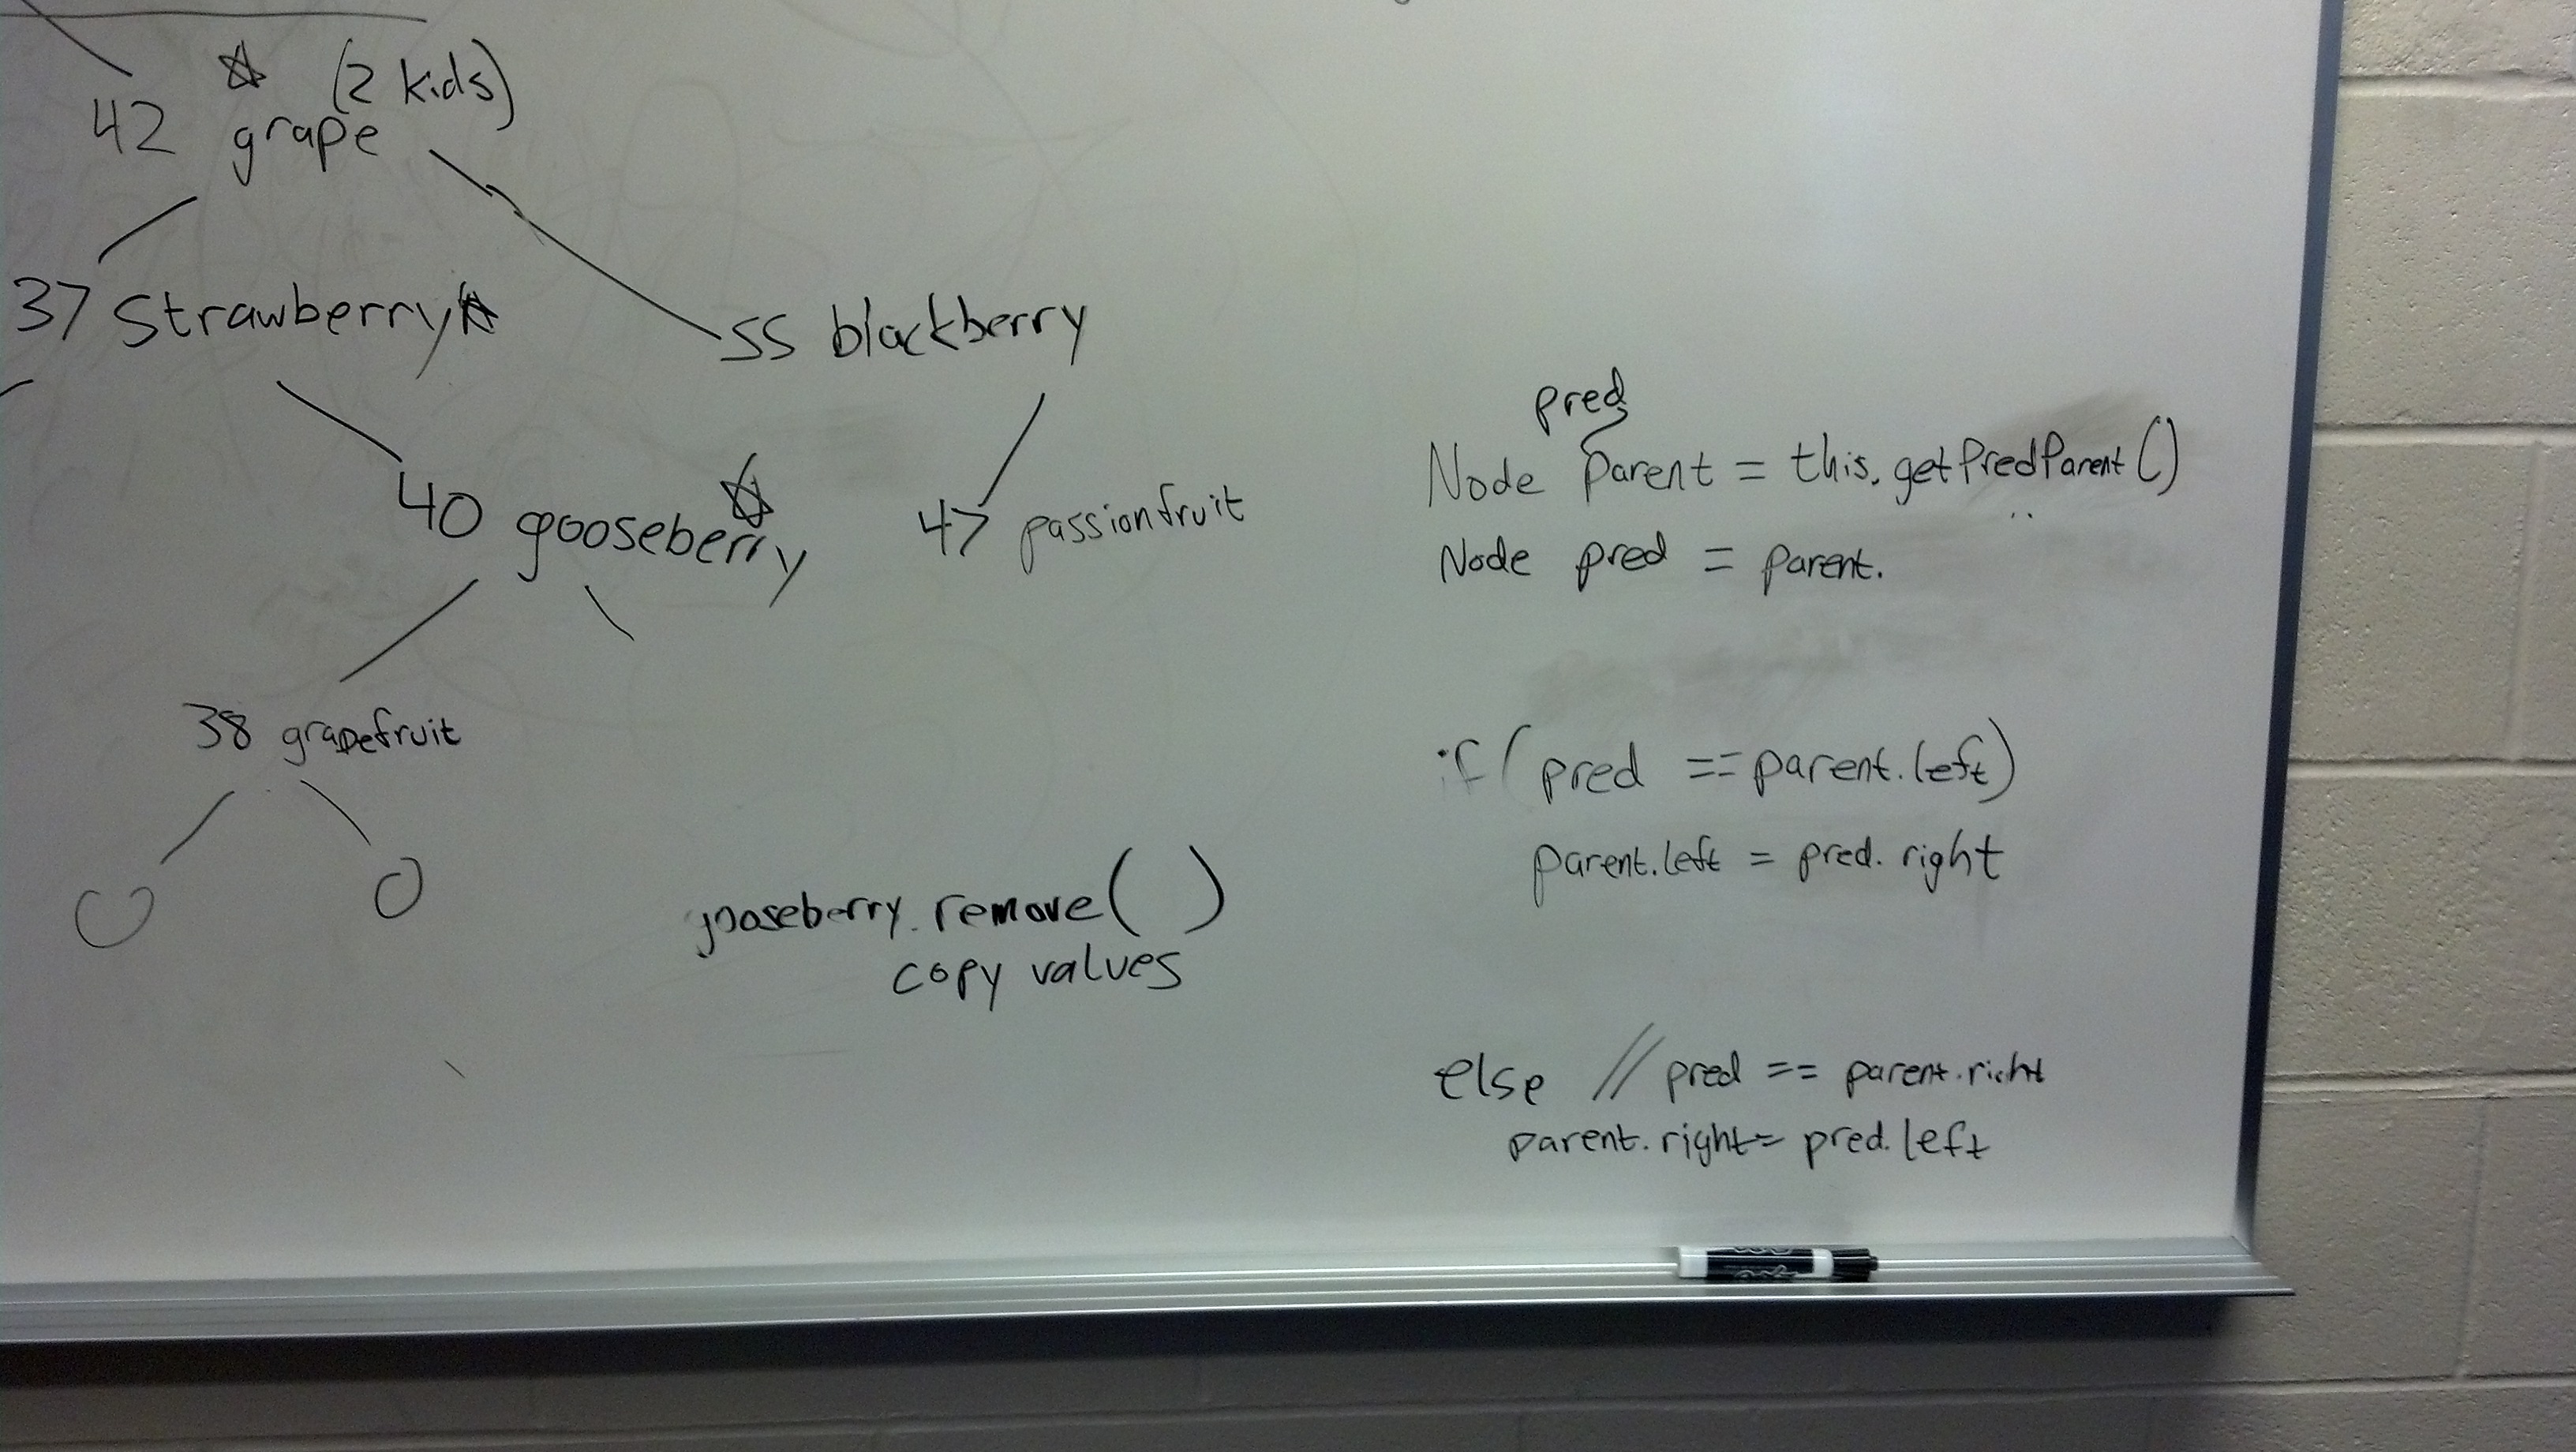 (2 kids)
42 grape
37 Strawberry
55 blackberry
40 gooseberry
47 passionfruit
38 grapefruit
gooseberry.remove( )
copy values
pred
Node parent = this.getPredParent()
Node pred = parent.
if(pred == parent.left)
parent.left = pred.right
else // pred == parent.right
parent.right = pred.left